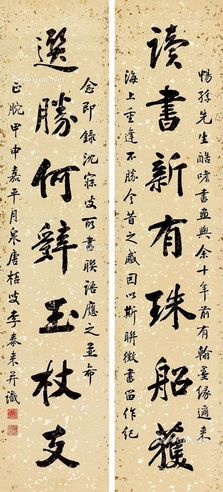 读書新有珠船獲
暢孫先生酷嗜書画與余十年前有翰墨緣適来
海上重逢不勝今昔之感因以斯聯徵書留作紀
選勝何辭玉杖支
念即錄沈寐叟所書聯語應之並希
正腕甲申嘉平月泉唐桔叟李泰来并識